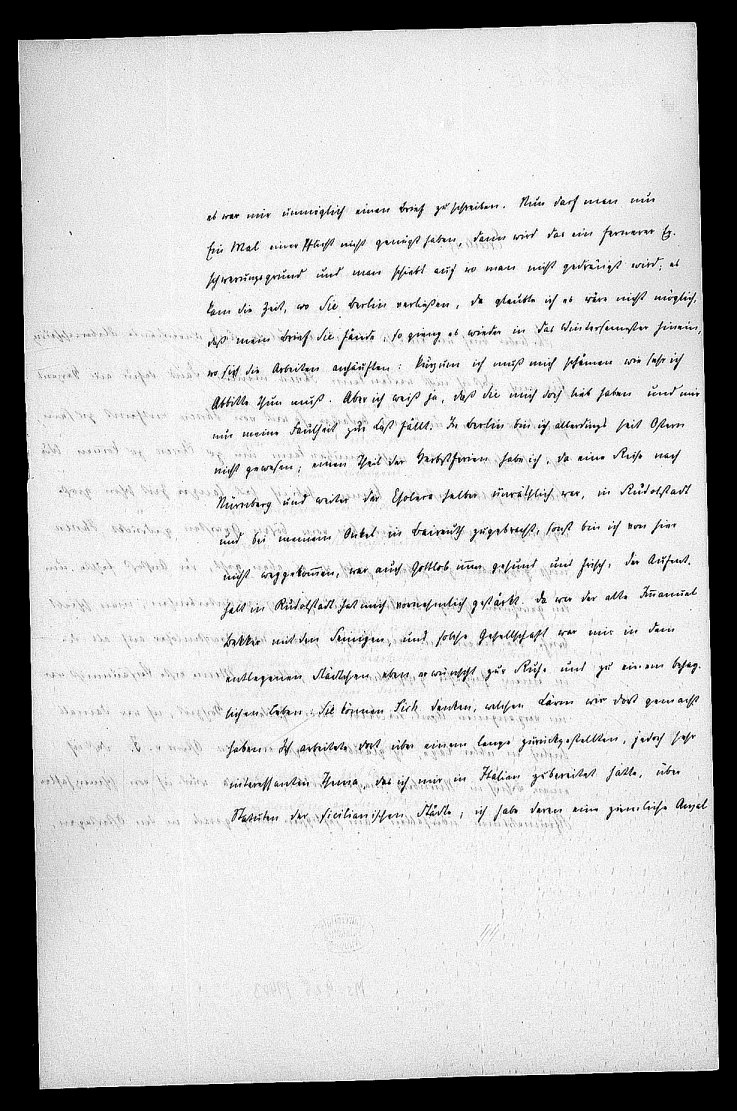 es war mir unmöglich einen Brief zu schreiben. Nun darf man nur
Ein Mal einer Pflicht nicht genügt haben, dann wird das ein fernerer Er-
schwerungsgrund und man schiebt auf wo man nicht gedrängt wird; es
kam die Zeit, wo Sie Berlin verließen, da glaubte ich es wäre nicht möglich,
daß mein Brief Sie fände, so gieng es wieder in das Wintersemester hinein,
wo sich die Arbeiten anhäuften: kurzum ich muß mich schämen wie sehr ich
Abbitte thun muß. Aber ich weiß ja, daß Sie mich doch lieb haben und mir
nur meine Faulheit zur Last fällt. In Berlin bin ich allerdings seit Ostern
nicht gewesen; einen Theil der Herbstferien habe ich, da eine Reise nach
Nürnberg und weiter der Cholera halber unräthlich war, in Rudolstadt
und bei meinem Onkel in Baireuth zugebracht, sonst bin ich von hier
nicht weggekommen, war auch Gottlob immer gesund und frisch; der Aufent-
halt in Rudolstadt hat mich vornehmlich gestärkt. da war der alte Immanuel
Bekker mit den Seinigen, und solche Gesellschaft war mir in dem
entlegenen Städtchen eben erwünscht zur Ruhe und zu einem behag-
lichen Leben: Sie können Sich denken, welchen Lärm wir dort gemacht
haben. Ich arbeitete dort über einem lange zurückgestellten, jedoch sehr
interessanten Thema, das ich mir in Italien zubereitet hatte, über
Statuten der sicilianischen Städte; ich habe deren eine ziemliche Anzal
44